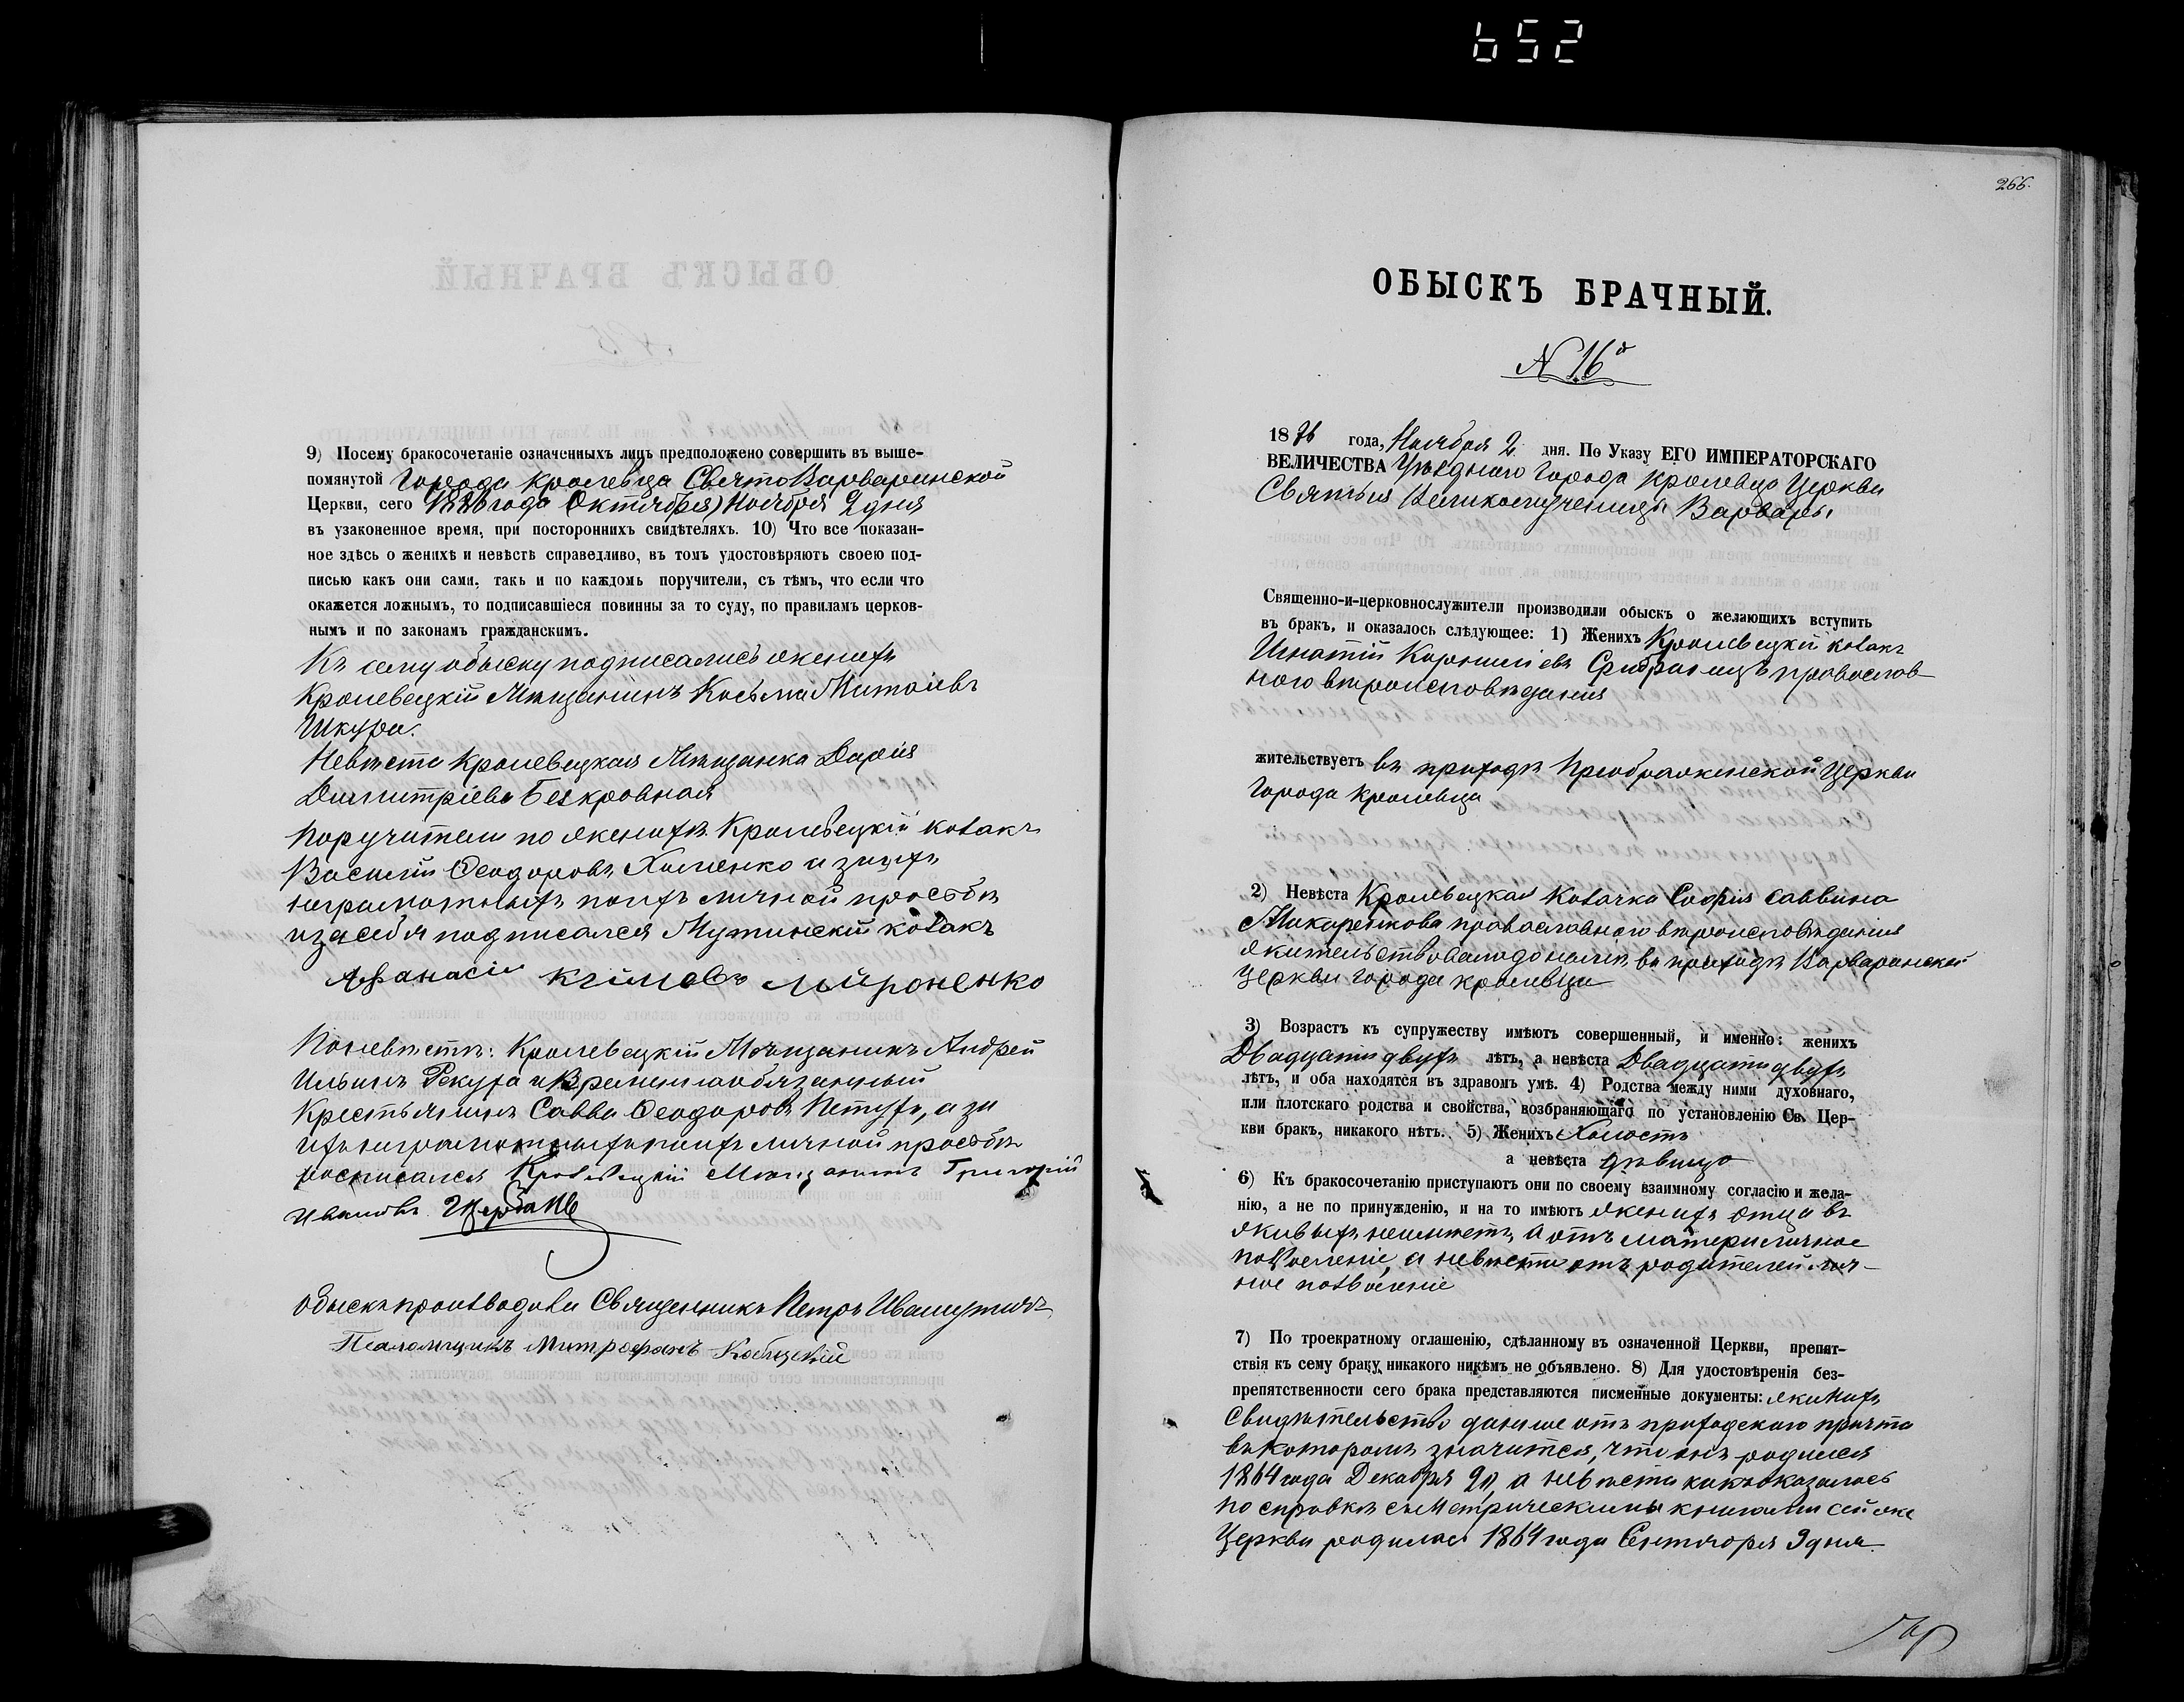 652
9) Посему бракосочетаніе означенныхъ лицъ предположено совершить въ выше-
помянутой Города Кролевца СвятоВарваринской
Церкви, сего 1886 года Октября) Ноября 2 дня
въ узаконенное время, при постороннихъ свидѣтеляхъ. 10) Что все показан-
ное здѣсь о женихѣ и невѣстѣ справедливо, въ томъ удостовѣряютъ своею под-
писью какъ они сами, такъ и по каждомъ поручители, съ тѣмъ, что если что
окажется ложнымъ, то подписавшіеся повинны за то суду, по правиламъ церков-
нымъ и по законамъ гражданскимъ.
Къ сему обыску подписались женихъ
Кролевецкій Мѣщанинъ Косьма
Шкура.
Невѣста Кролевецкая Мѣщанка Дарія
Димитріева Безкровная
Поручители по женихѣ Кролевецкій козакъ
Василій Ѳеодоровъ Хоменко и за ихъ
неграмотныхъ по ихъ личной просьбѣ
и за себя подписался Мутинскій козакъ
Афанасій Климовъ Мироненко
По невѣстѣ: Кролевецкій Мѣщанинъ Андрей
Ильинъ Рекуха и Временнообязанный
Крестьянинъ Савва Ѳеодоровъ Петухъ, а за
ихъ неграмотныхъ по ихъ личной просьбѣ
росписался Кролевецкій Мѣщанинъ Григорій
Ивановъ Щербакъ
Обыскъ производили Священникъ Петръ Ивашутичъ
Псаломщикъ Митрофанъ Кобицскій
266.
ОБЫСКЪ БРАЧНЫЙ.
N 16й
1886 года, Ноября 2 дня. По Указу ЕГО ИМПЕРАТОРСКАГО
ВЕЛИЧЕСТВА Уѣзднаго Города Кролевца Церкви
Святыя Великомученицы Варвары
Священно-и-церковнослужители производили обыскъ о желающихъ вступить
въ бракъ, и оказалось слѣдующее: 1) Женихъ Кролевецкій козакъ
Игнатій Корниліевъ Срибранецъ православ-
ного вѣроисповѣданія
жительствуетъ въ приходѣ Преображенской Церкви
Города Кролевца
2) Невѣста Кролевецкая Козачка Софія Саввина
Макаренкова православного вѣроисповѣданія
жительствовала донынѣ въ приходѣ Варваринской
Церкви города Кролевца
3) Возрастъ къ супружеству имѣютъ совершенный, и именно: женихъ
Двадцати двухъ лѣтъ, а невѣста Двадцати двухъ
лѣтъ, и оба находятся въ здравомъ умѣ. 4) Родства между ними духовнаго,
или плотскаго родства и свойства, возбраняющаго по установленію Св. Цер-
кви бракъ, никакого нѣтъ. 5) Женихъ Холостъ
а невѣста дѣвица
6) Къ бракосочетанію приступаютъ они по своему взаимному согласію и жела-
нію, а не по принужденію, и на то имѣютъ женихъ отца въ
живыхъ неимѣетъ, а отъ матери личное
позволеніе, а невѣста отъ родителей лич-
ное позволеніе
7) По троекратному оглашенію, сдѣланному въ означенной Церкви, препят-
ствія къ сему браку, никакого никѣмъ не объявлено. 8) Для удостовѣренія без-
препятственности сего брака представляются писменные документы: женихъ
Свидѣтельство данное отъ приходскаго причта
въ которомъ значится, что онъ родился
1864 года Декабря 20, а невѣста какъ оказалось
по справкѣ съ метрическими книгами сей же
Церкви родилась 1864 года Сентября 9 дня.